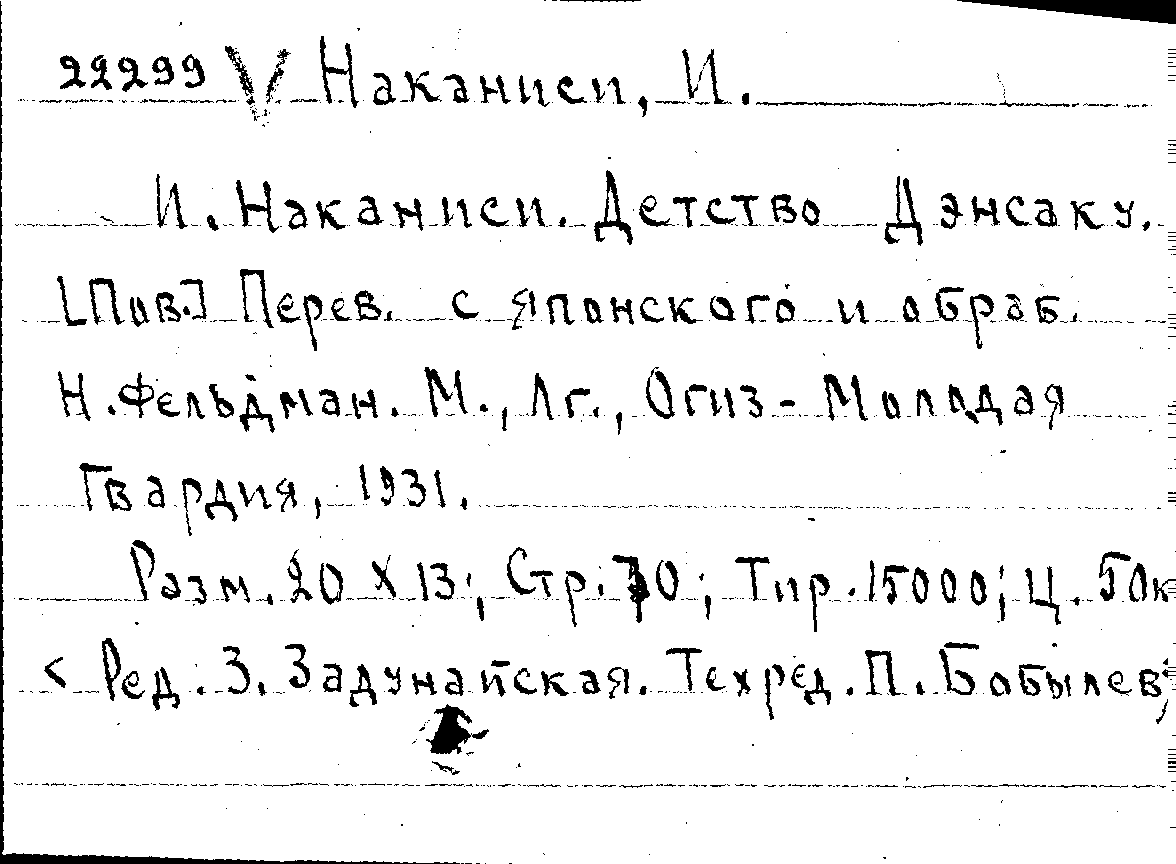 22299 V Наканиси, И.
И. Наканиси. Детство Дэнсаку.
[Пов.] Перев. с японского и обраб.
Н. Фельдман. М., Лг., Огиз - Молодая
Гвардия, 1931.
Разм. 20 X 13; Стр. 70; Тир. 15000; Ц. 50к
< Ред. З. Задунайская. Техред. П. Бобылев;